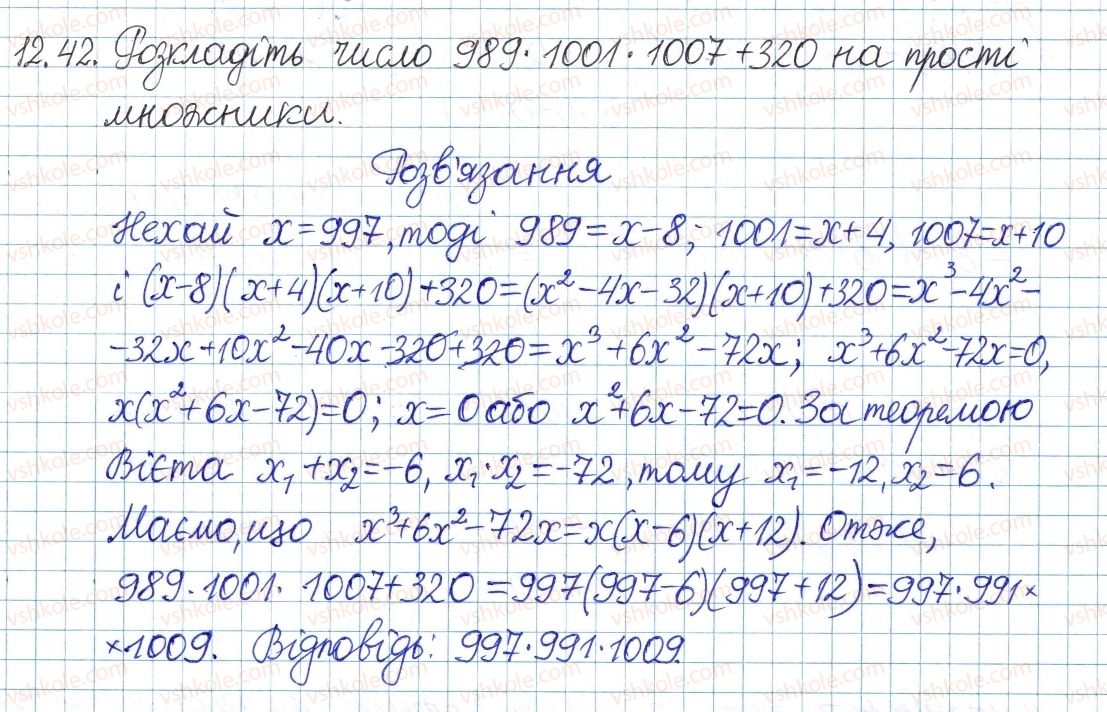 12.42. Розкладіть число 989·1001·1007+320 на прості
множники.
Розв'язання
Нехай x=997, тоді 989=x-8; 1001=x+4, 1007=x+10
і (x-8)(x+4)(x+10)+320=(x²-4x-32)(x+10)+320=x³-4x²-
-32x+10x²-40x-320+320=x³+6x²-72x; x³+6x²-72x=0,
x(x²+6x-72)=0; x=0 або x²+6x-72=0. За теоремою
Вієта x₁+x₂=-6, x₁·x₂=-72, тому x₁=-12, x₂=6.
Маємо, що x³+6x²-72x=x(x-6)(x+12). Отже,
989·1001·1007+320=997(997-6)(997+12)=997·991×
×1009. Відповідь: 997·991·1009.